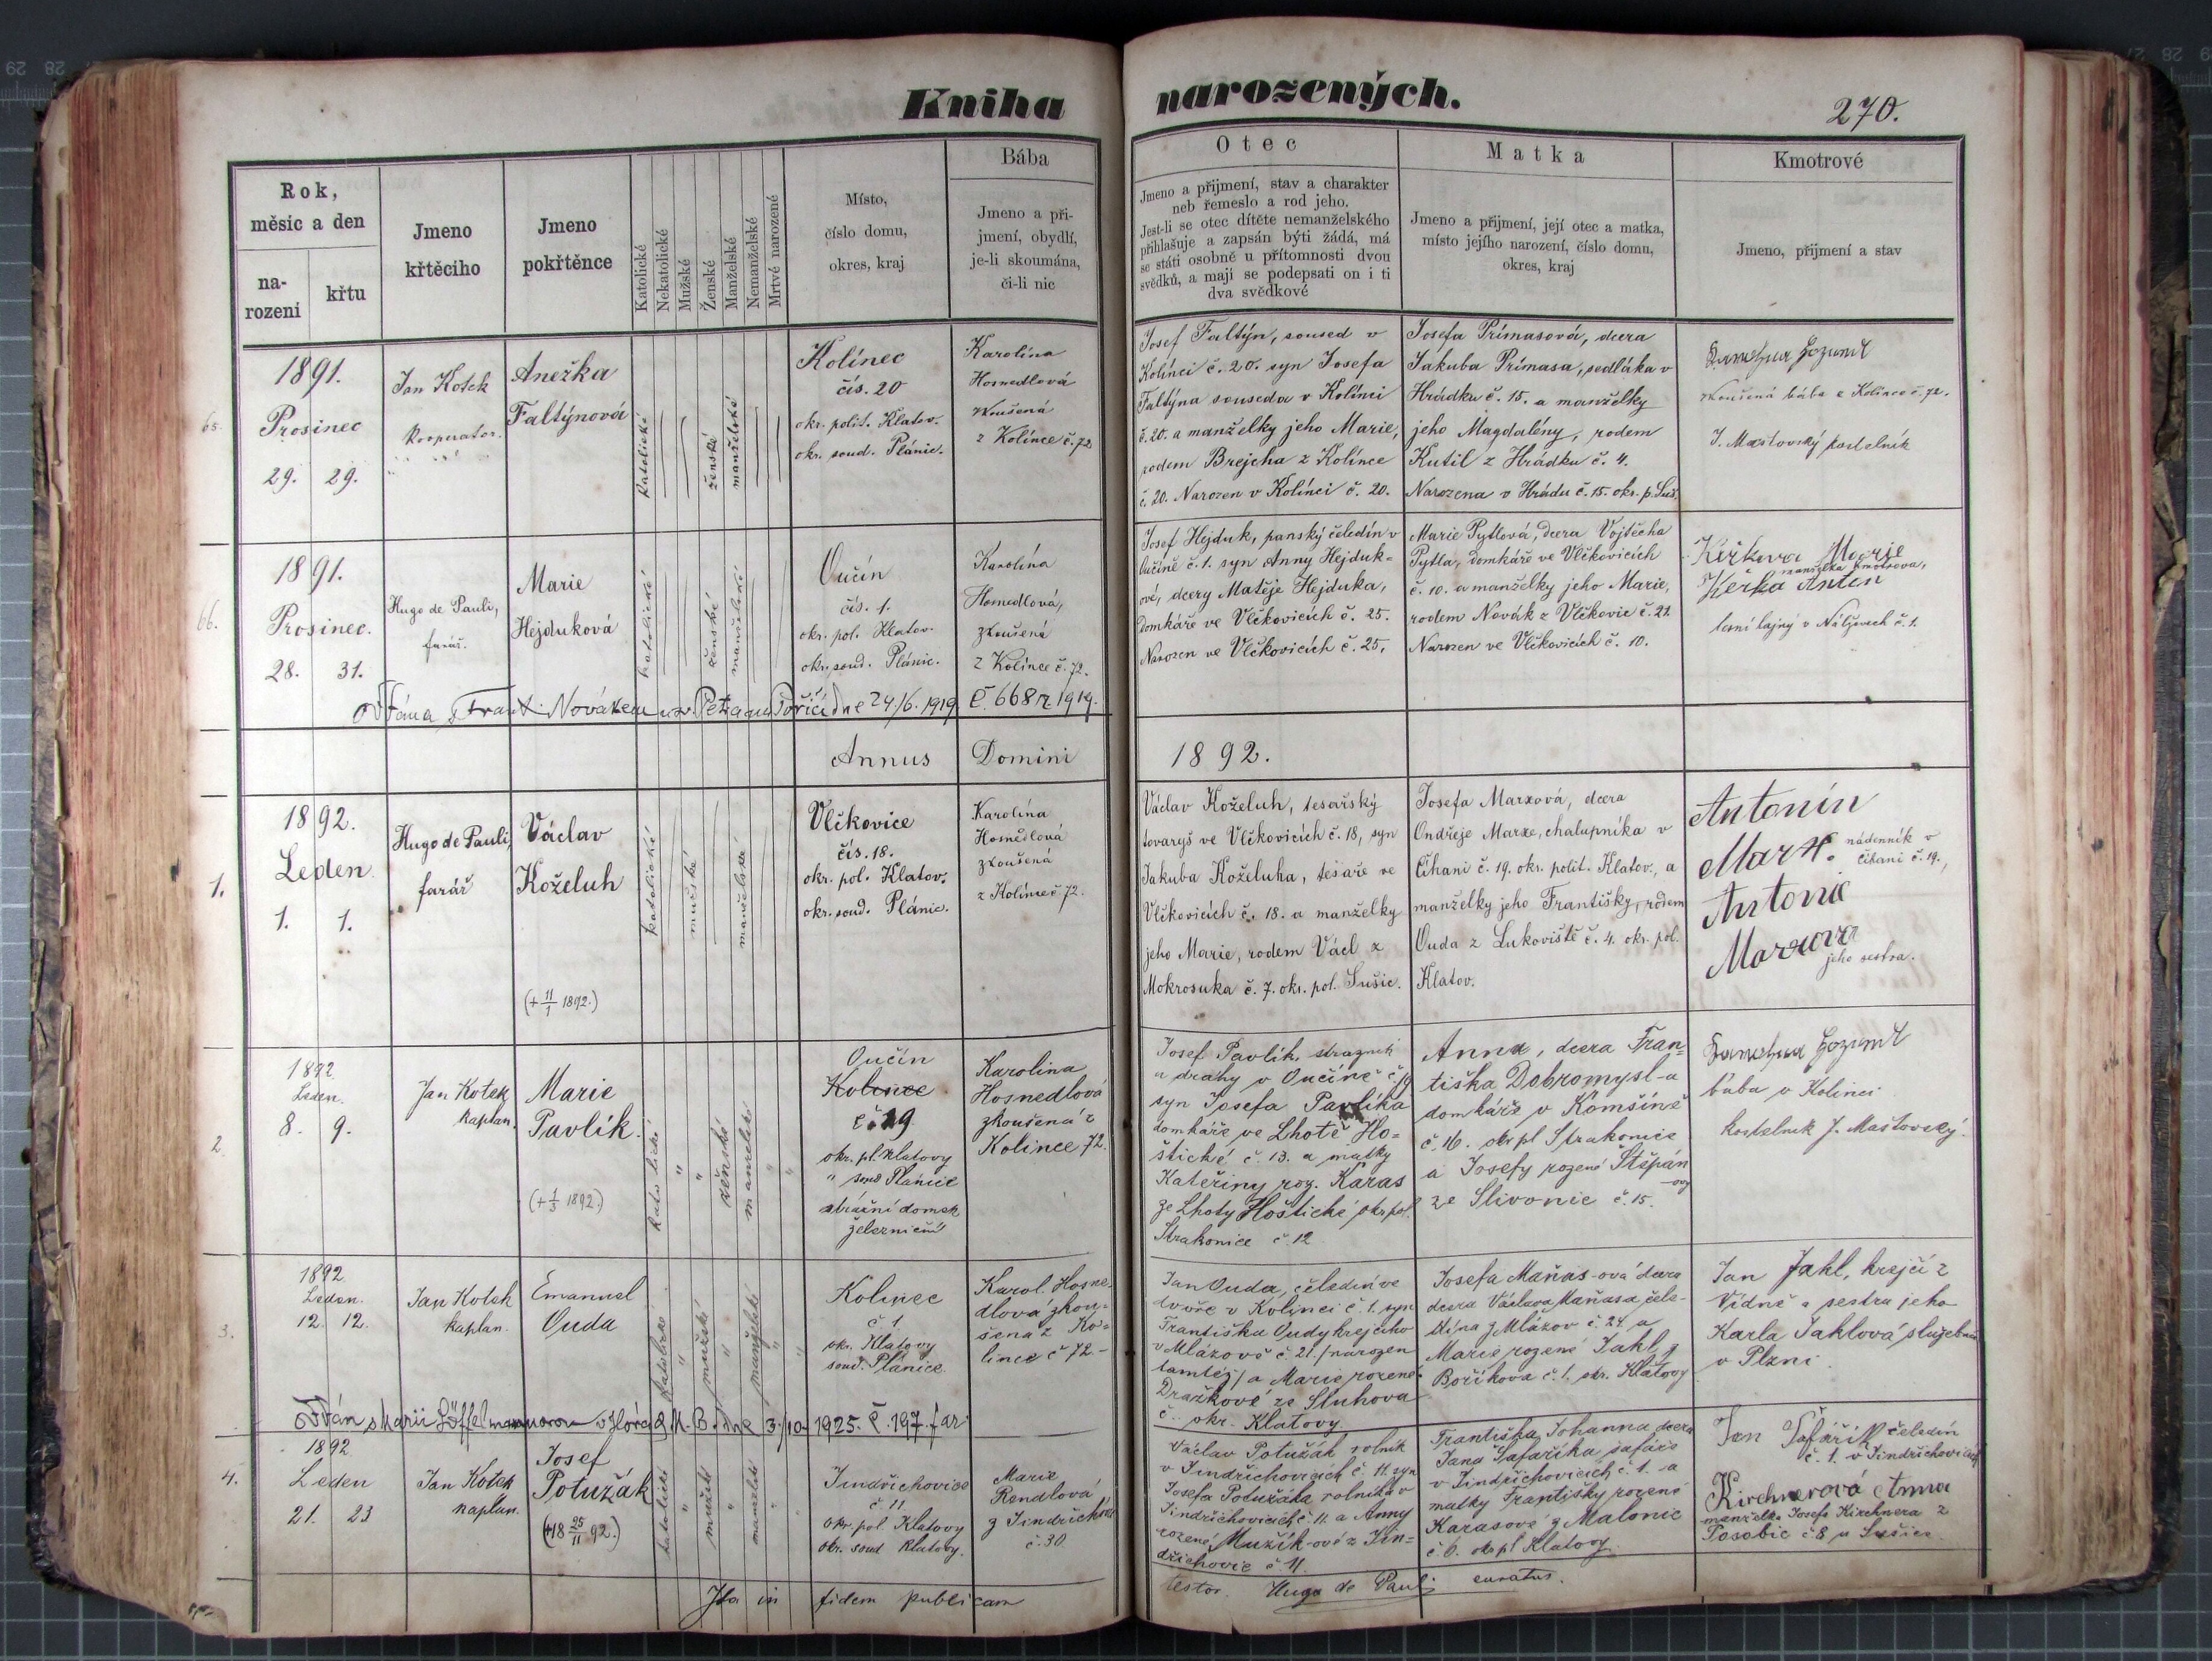 Kniha narozených.
270.
Rok,
měsíc a den
na-
rození
křtu
Jmeno
křtěcího
Jmeno
pokřtěnce
Katolické
Nekatolické
Mužské
Ženské
Manželské
Nemanželské
Mrtvé narozené
Místo,
číslo domu,
okres, kraj
Bába
Jmeno a pří-
jmení, obydlí,
je-li skoumána,
či-li nic
Otec
Jmeno a přijmení, stav a charakter
neb řemeslo a rod jeho.
Jest-li se otec dítěte nemanželského
přihlašuje a zapsán býti žádá, má
se státi osobně u přítomnosti dvou
svědků, a mají se podepsati on i ti
dva svědkové
Matka
Jmeno a přijmení, její otec a matka,
místo jejího narození, číslo domu,
okres, kraj
Kmotrové
Jmeno, přijmení a stav
65.
1891.
Prosinec
29. 29.
Jan Kotek
kooperator.
Anežka
Faltýnová
katolické
ženské
manželské
Kolínec
čís. 20
okr. polit. Klatov.
okr. soud. Plánic.
Karolína
Hosnedlová
zkoušená
z Kolínce č. 72
Josef Faltýn, soused v
Kolínci č. 20. syn Josefa
Faltýna souseda v Kolínci
č. 20. a manželky jeho Marie,
rodem Brejcha z Kolínce
č. 20. Narozen v Kolínci č. 20.
Josefa Prímasová, dcera
Jakuba Prímasa, sedláka v
Hrádku č. 15. a manželky
jeho Magdalény, rodem
Kutil z Hrádku č. 4.
Narozena v Hrádu č. 15. okr. p. Suš.
zkoušená bába z Kolince č. 72.
J. Maštovský kostelník
66.
1891.
Prosinec.
28. 31.
Hugo de Pauli,
farář.
Marie
Hejduková
katolické
ženské
manželské
Oučín
čís. 1.
okr. pol. Klatov.
okr. soud. Plánic.
Karolína
Hosnedlová,
zkoušená
z Kolínce č. 72.
Josef Hejduk, panský čeledín v
Oučíně č. 1. syn Anny Hejduk-
ové, dcery Matěje Hejduka,
Domkáře ve Vlčkovicích č. 25.
Narozen ve Vlčkovicích č. 25.
Marie Pytlová, dcera Vojtěcha
Pytla, domkáře ve Vlčkovicích
č. 10. a manželky jeho Marie,
rodem Novák z Vlčkovic č. 21.
Narozen ve Vlčkovicích č. 10.
Kerkova Marie
manželka kmotrova,
Kerka Anton
lesní hajný v Nalžovech č. 1.
oddána s Frant. Novákem u sv. Petra na Poříčí dne 24/6. 1919 č. 668 r. 1919.
Annus Domini 1892.
1.
1892.
Leden.
1. 1.
Hugo de Pauli,
farář
Václav
Koželuh
(+ 11/1 1892.)
katolické
mužské
manželské
Vlčkovice
čís. 18.
okr. pol. Klatov.
okr. soud. Plánic.
Karolína
Hosnedlová
zkoušená
z Kolínce č. 72.
Václav Koželuh, tesařský
tovaryš ve Vlčkovicích č. 18, syn
Jakuba Koželuha, tesaře ve
Vlčkovicích č. 18. a manželky
jeho Marie, rodem Václ z
Mokrosuka č. 7. okr. pol. Sušic.
Josefa Marxová, dcera
Ondřeje Marxe, chalupníka v
Číhani č. 19. okr. polit. Klatov., a
manželky jeho Františky, rodem
Ouda z Lukoviště č. 4. okr. pol.
Klatov.
Antonín
Marx. nádenník v
Číhani č. 19.,
Antonie
Marxova
jeho sestra.
2.
1892
Leden.
8. 9.
Jan Kotek
kaplan.
Marie
Pavlík.
(+ 1/3 1892.)
katolické
ženské
manželské
Oučín
Kolinec
č. 19
okr. pl. Klatovy
" soud Plánice
strážní domek
železniční
Karolina
Hosnedlová
zkoušená z
Kolince 72.
Josef Pavlík, strážník
u dráhy v Oučíně č. 19
syn Josefa Pavlíka
domkáře ve Lhotě Ho-
štické č. 13. a matky
Kateřiny roz. Karas
ze Lhoty Hoštické okr. pol.
Strakonice č. 12
Anna, dcera Fran-
tiška Dobromysl-a
domkáře v Komšíně
č. 16. okr pl Strakonice
a Josefy rozené Štěpán
-ovy
ze Slivonic č. 15.
bába v Kolinci
kostelník J. Maštovský.
3.
1892
Leden.
12. 12.
Jan Kotek
kaplan.
Emanuel
Ouda
katolické
mužské
manželské
Kolinec
č 1
okr. Klatovy
soud. Plánice.
Karol. Hosne-
dlová zkou-
šená z Ko-
lince č 72.
Jan Ouda, čeledín ve
dvoře v Kolinci č. 1. syn
Františka Oudy krejčího
v Mlázově č. 21. / narozen
tamtéž / a Marie rozené
Dražkové ze Sluhova
č. okr. Klatovy
Josefa Maňas-ová dcera
dcera Václava Maňasa čele-
dína z Mlázov č. 24 a
Marie rozené Jakl z
Bořikova č. 1. okr. Klatovy
Jan Jakl, krejčí z
Vídně a sestra jeho
Karla Jaklová služebná
v Plzni.
3./10. 1925. č. 197. far.
4.
1892
Leden
21. 23
Jan Kotek
kaplan.
Josef
Potužák
(+18 25/11 92.)
katolické
mužské
manželské
Jindřichovice
č. 11.
okr. pol. Klatovy
okr. soud Klatovy.
Marie
Rendlová
z Jindřichovic
č. 30
Václav Potužák rolník
v Jindřichovicích č. 11. syn
Josefa Potužáka rolníka v
Jindřichovicích č. 11. a Anny
rozené Mužík-ové z Jin-
dřichovic č 11.
Františka Johanna dcera
Jana Šafaříka šafáře
v Jindřichovicích č. 1. a
matky Františky rozené
Karasové z Malonic
č. 6. okr. pl Klatovy.
Jan Šafařík čeledín
č. 1. v Jindřichovicích
Kirchnerová Anna
manželka Josefa Kirchnera z
Posobic č. 8 u Sušice.
Ita in fidem publicam testor. Hugo de Pauli curatus.